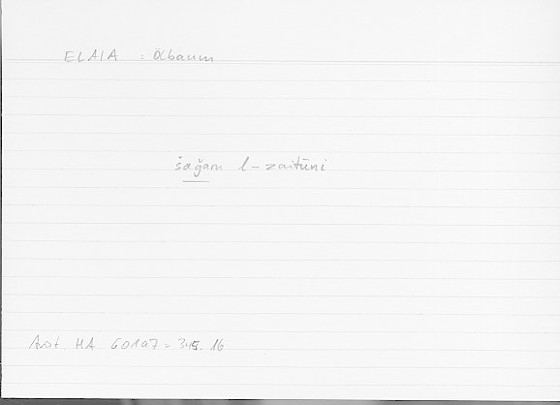 ELAIA = Ölbaum
šaǧaru l-zaitūni
Arist. HA 601a7 = 345.16